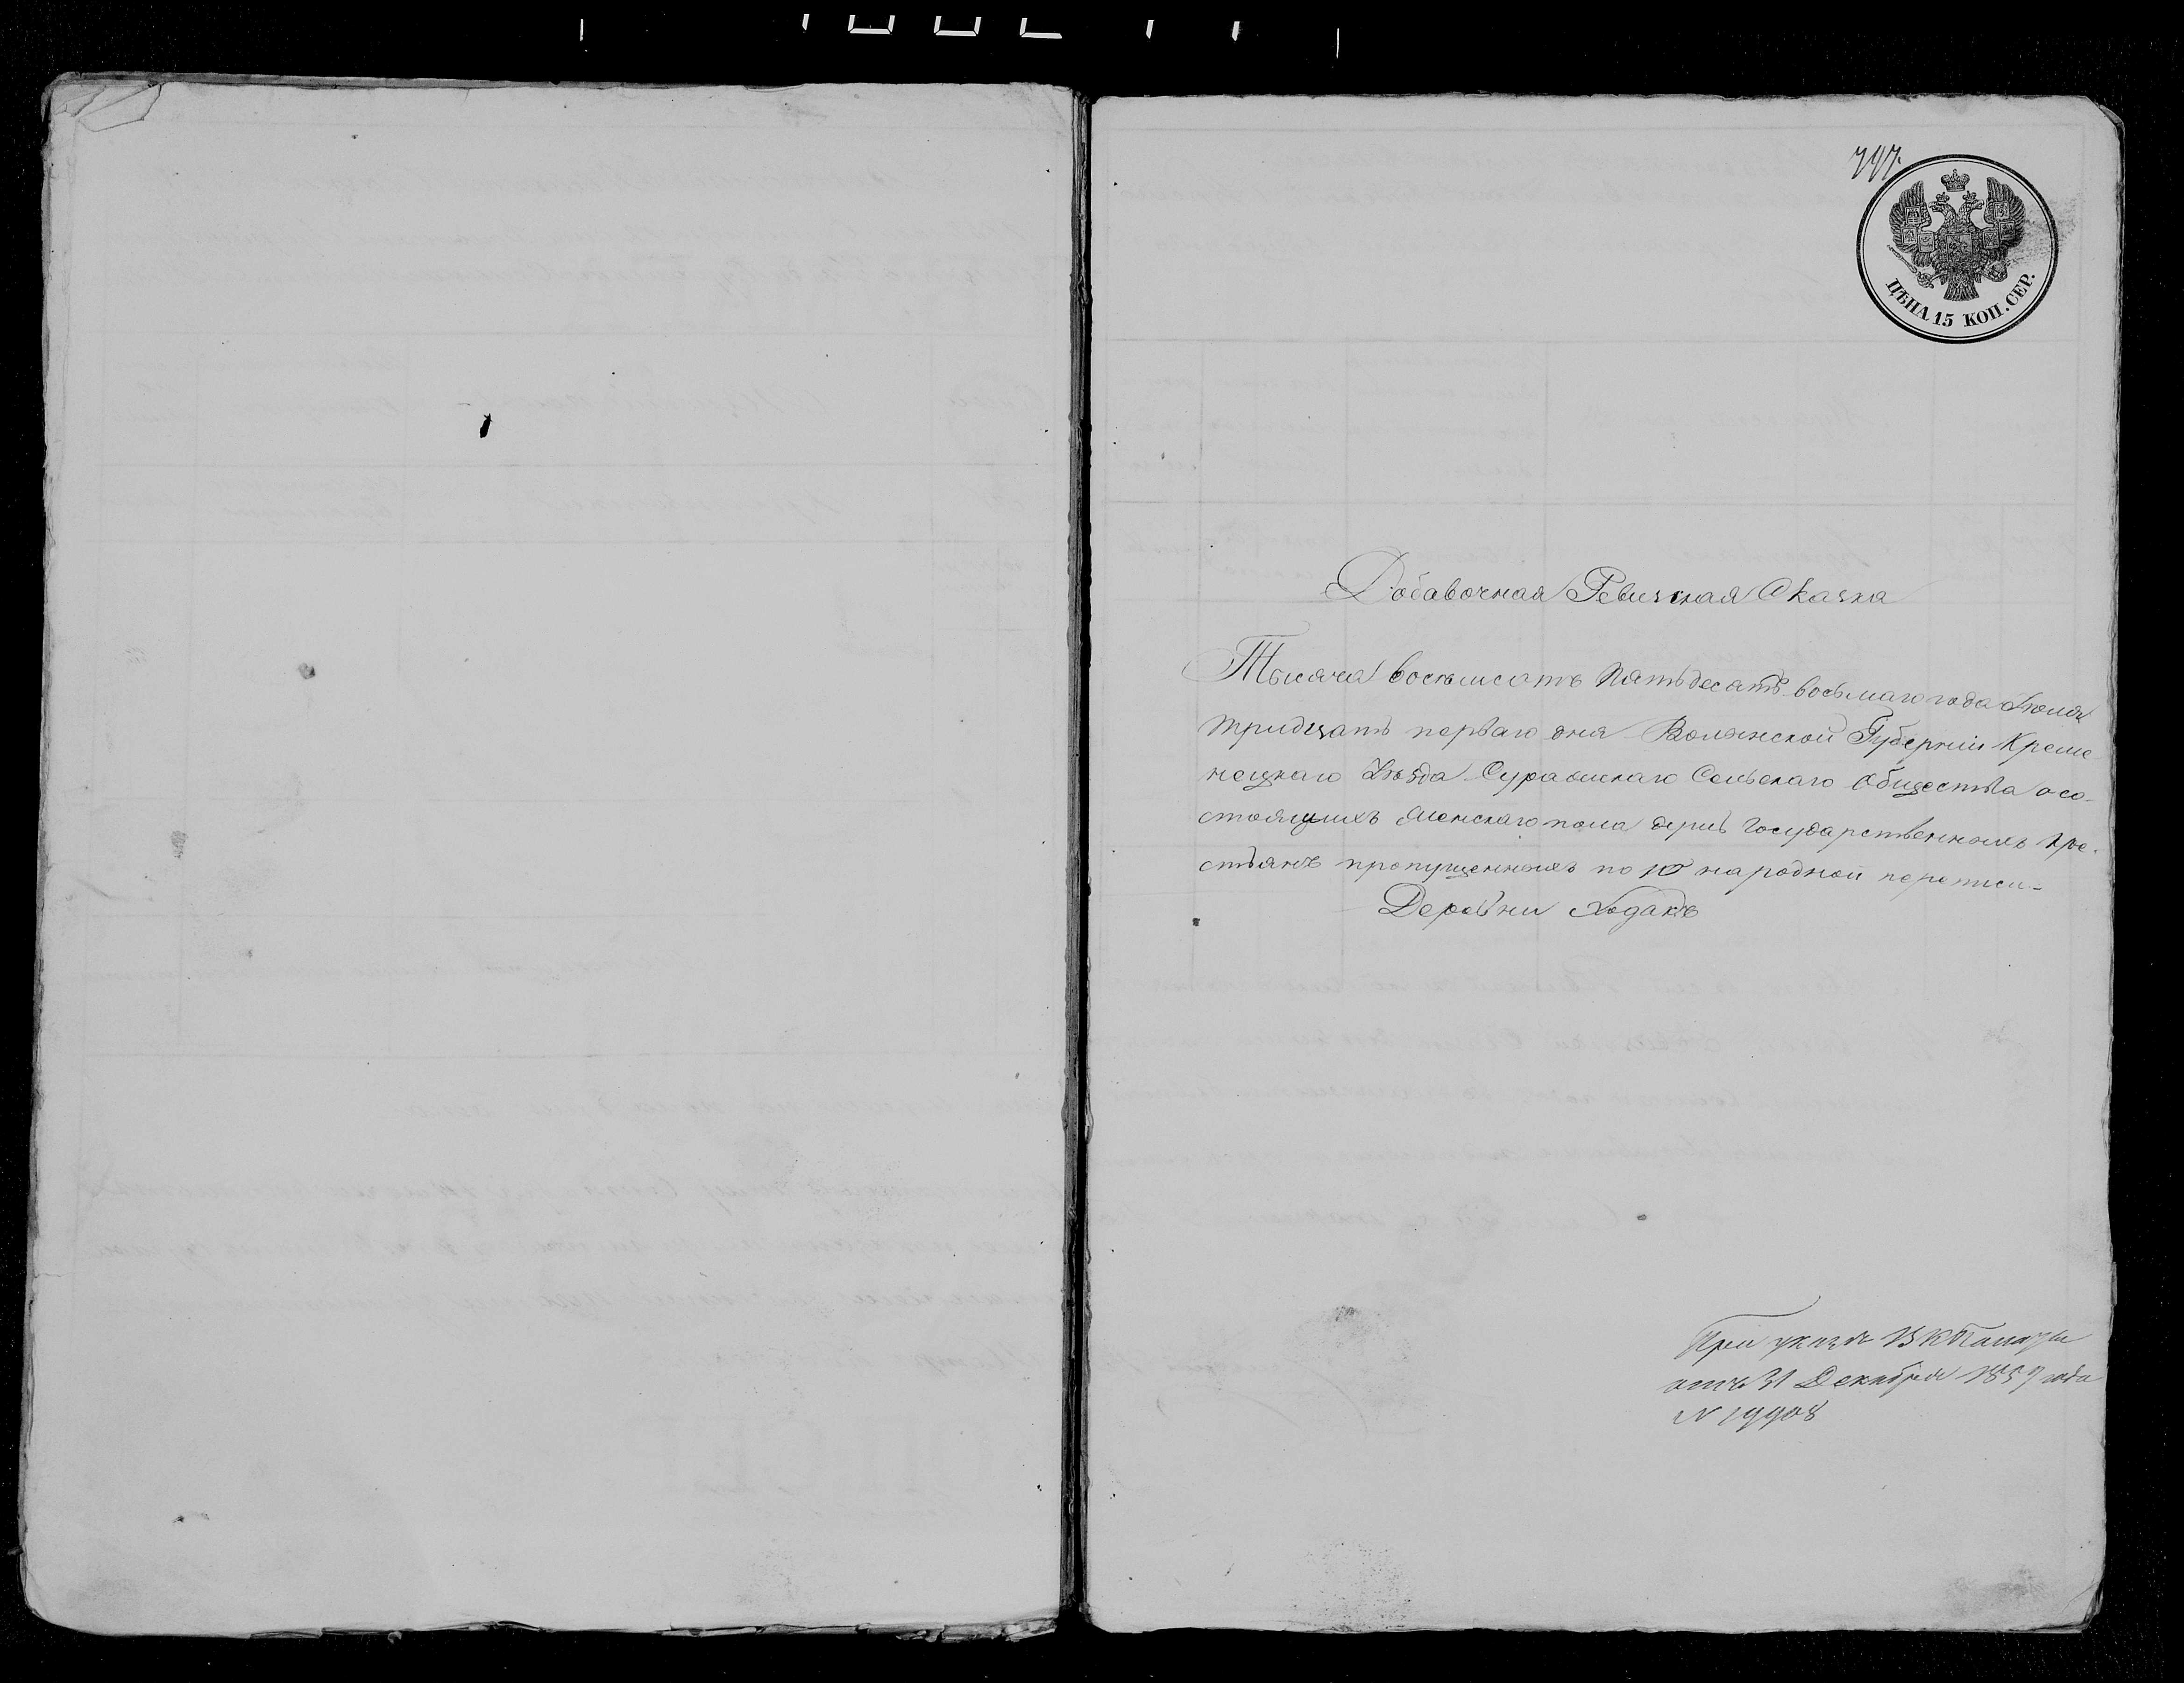 797.
ЦѢНА 15 КОП. СЕР.
Добавочная Ревизская Сказка
Тысяча восемьсотъ пятьдесятъ восьмаго года Іюля
тридцать перваго дня Волынской Губерніи Креме
нецкаго Уѣзда Суражскаго Сельскаго Общества о со-
стоящихъ женскаго пола душъ Государственныхъ кре-
стьянъ пропущенныхъ по 10 народной переписи
Деревни Ходакъ
При указѣ В К Палаты
отъ 31 Декабря 1859 года
N 19908